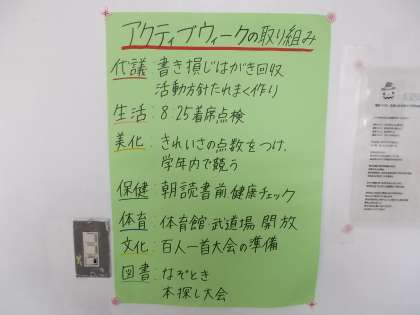 アクティブウィークの取り組み
代議：書き損じはがき回収
活動方針たれまく作り
生活：8:25着席点検
美化：きれいさの点数をつけ、
学年内で競う
保健：朝読書前健康チェック
体育：体育館 武道場 開放
文化：百人一首大会の準備
図書：なぞとき
本探し大会